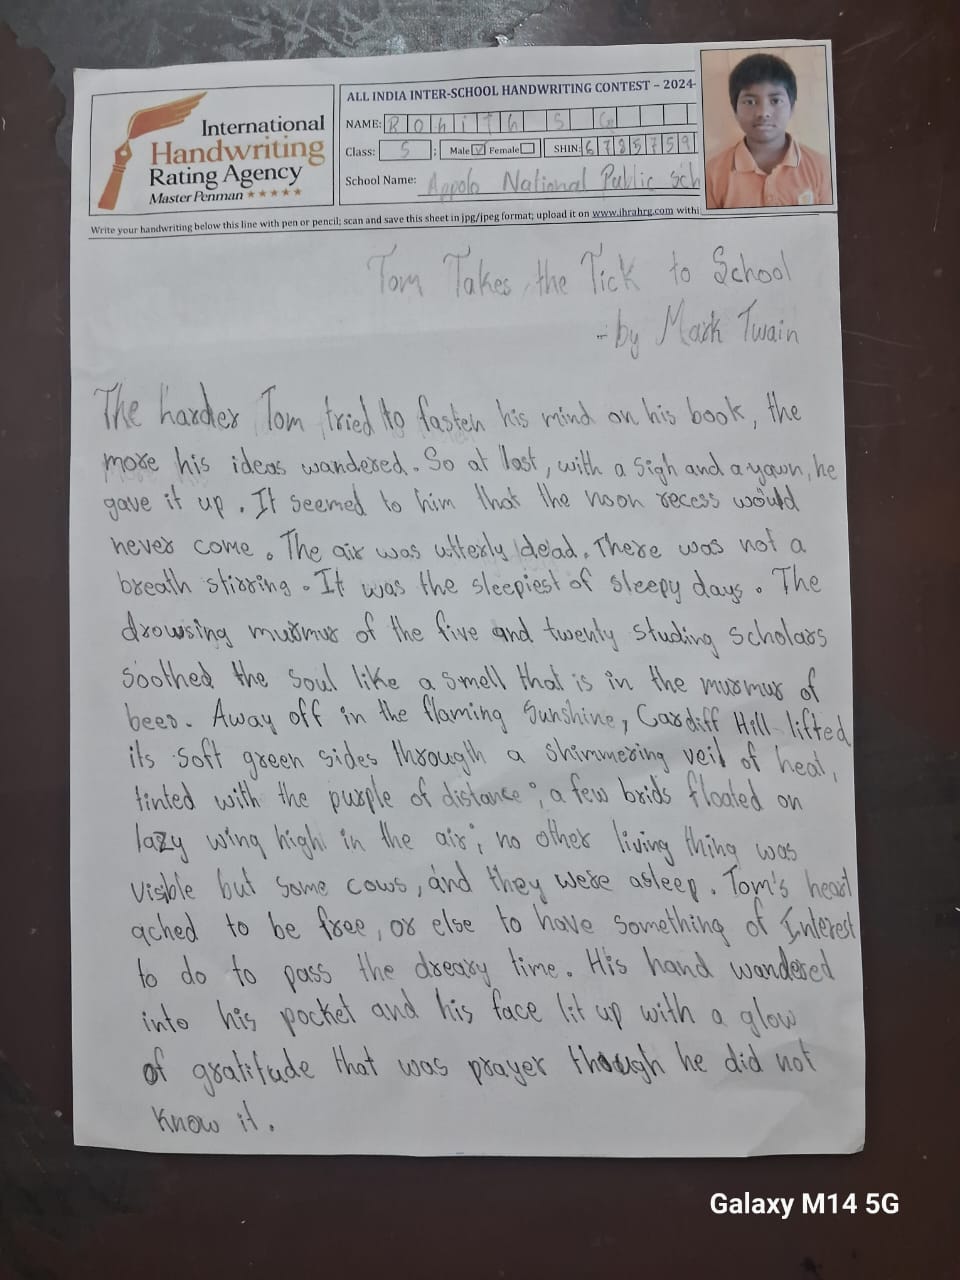 International
Handwriting
Rating Agency
Master Penman ★★★★★
ALL INDIA INTER-SCHOOL HANDWRITING CONTEST – 2024-
NAME: Rohith S G
Class: 5 Male Female SHIN: 6785759
School Name: Appolo National Public Sch
Write your handwriting below this line with pen or pencil; scan and save this sheet in jpg/jpeg format; upload it on www.ihrahrg.com withi
Tom Takes the Tick to School
- by Mark Twain
The harder Tom tried to fasten his mind on his book, the
more his ideas wandered. So at last, with a sigh and a yawn, he
gave it up. It seemed to him that the noon recess would
never come. The air was utterly dead. There was not a
breath stirring. It was the sleepiest of sleepy days. The
drowsing murmur of the five and twenty studing scholars
soothed the soul like a smell that is in the murmur of
bees. Away off in the flaming sunshine, Cardiff Hill lifted
its soft green sides through a shimmering veil of heat,
tinted with the purple of distance; a few brids floated on
lazy wing high in the air; no other living thing was
visible but some cows, and they were asleep. Tom's heart
ached to be free, or else to have something of Interest
to do to pass the dreary time. His hand wandered
into his pocket and his face lit up with a glow
of gratitude that was prayer though he did not
know it.
Galaxy M14 5G